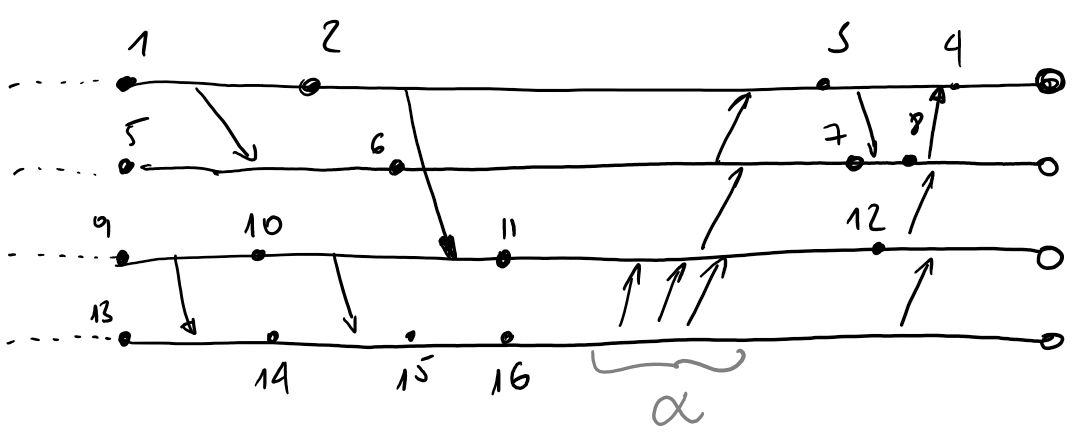 1 2 3 4
5 6 7 8
9 10 11 12
13
14 15 16
α